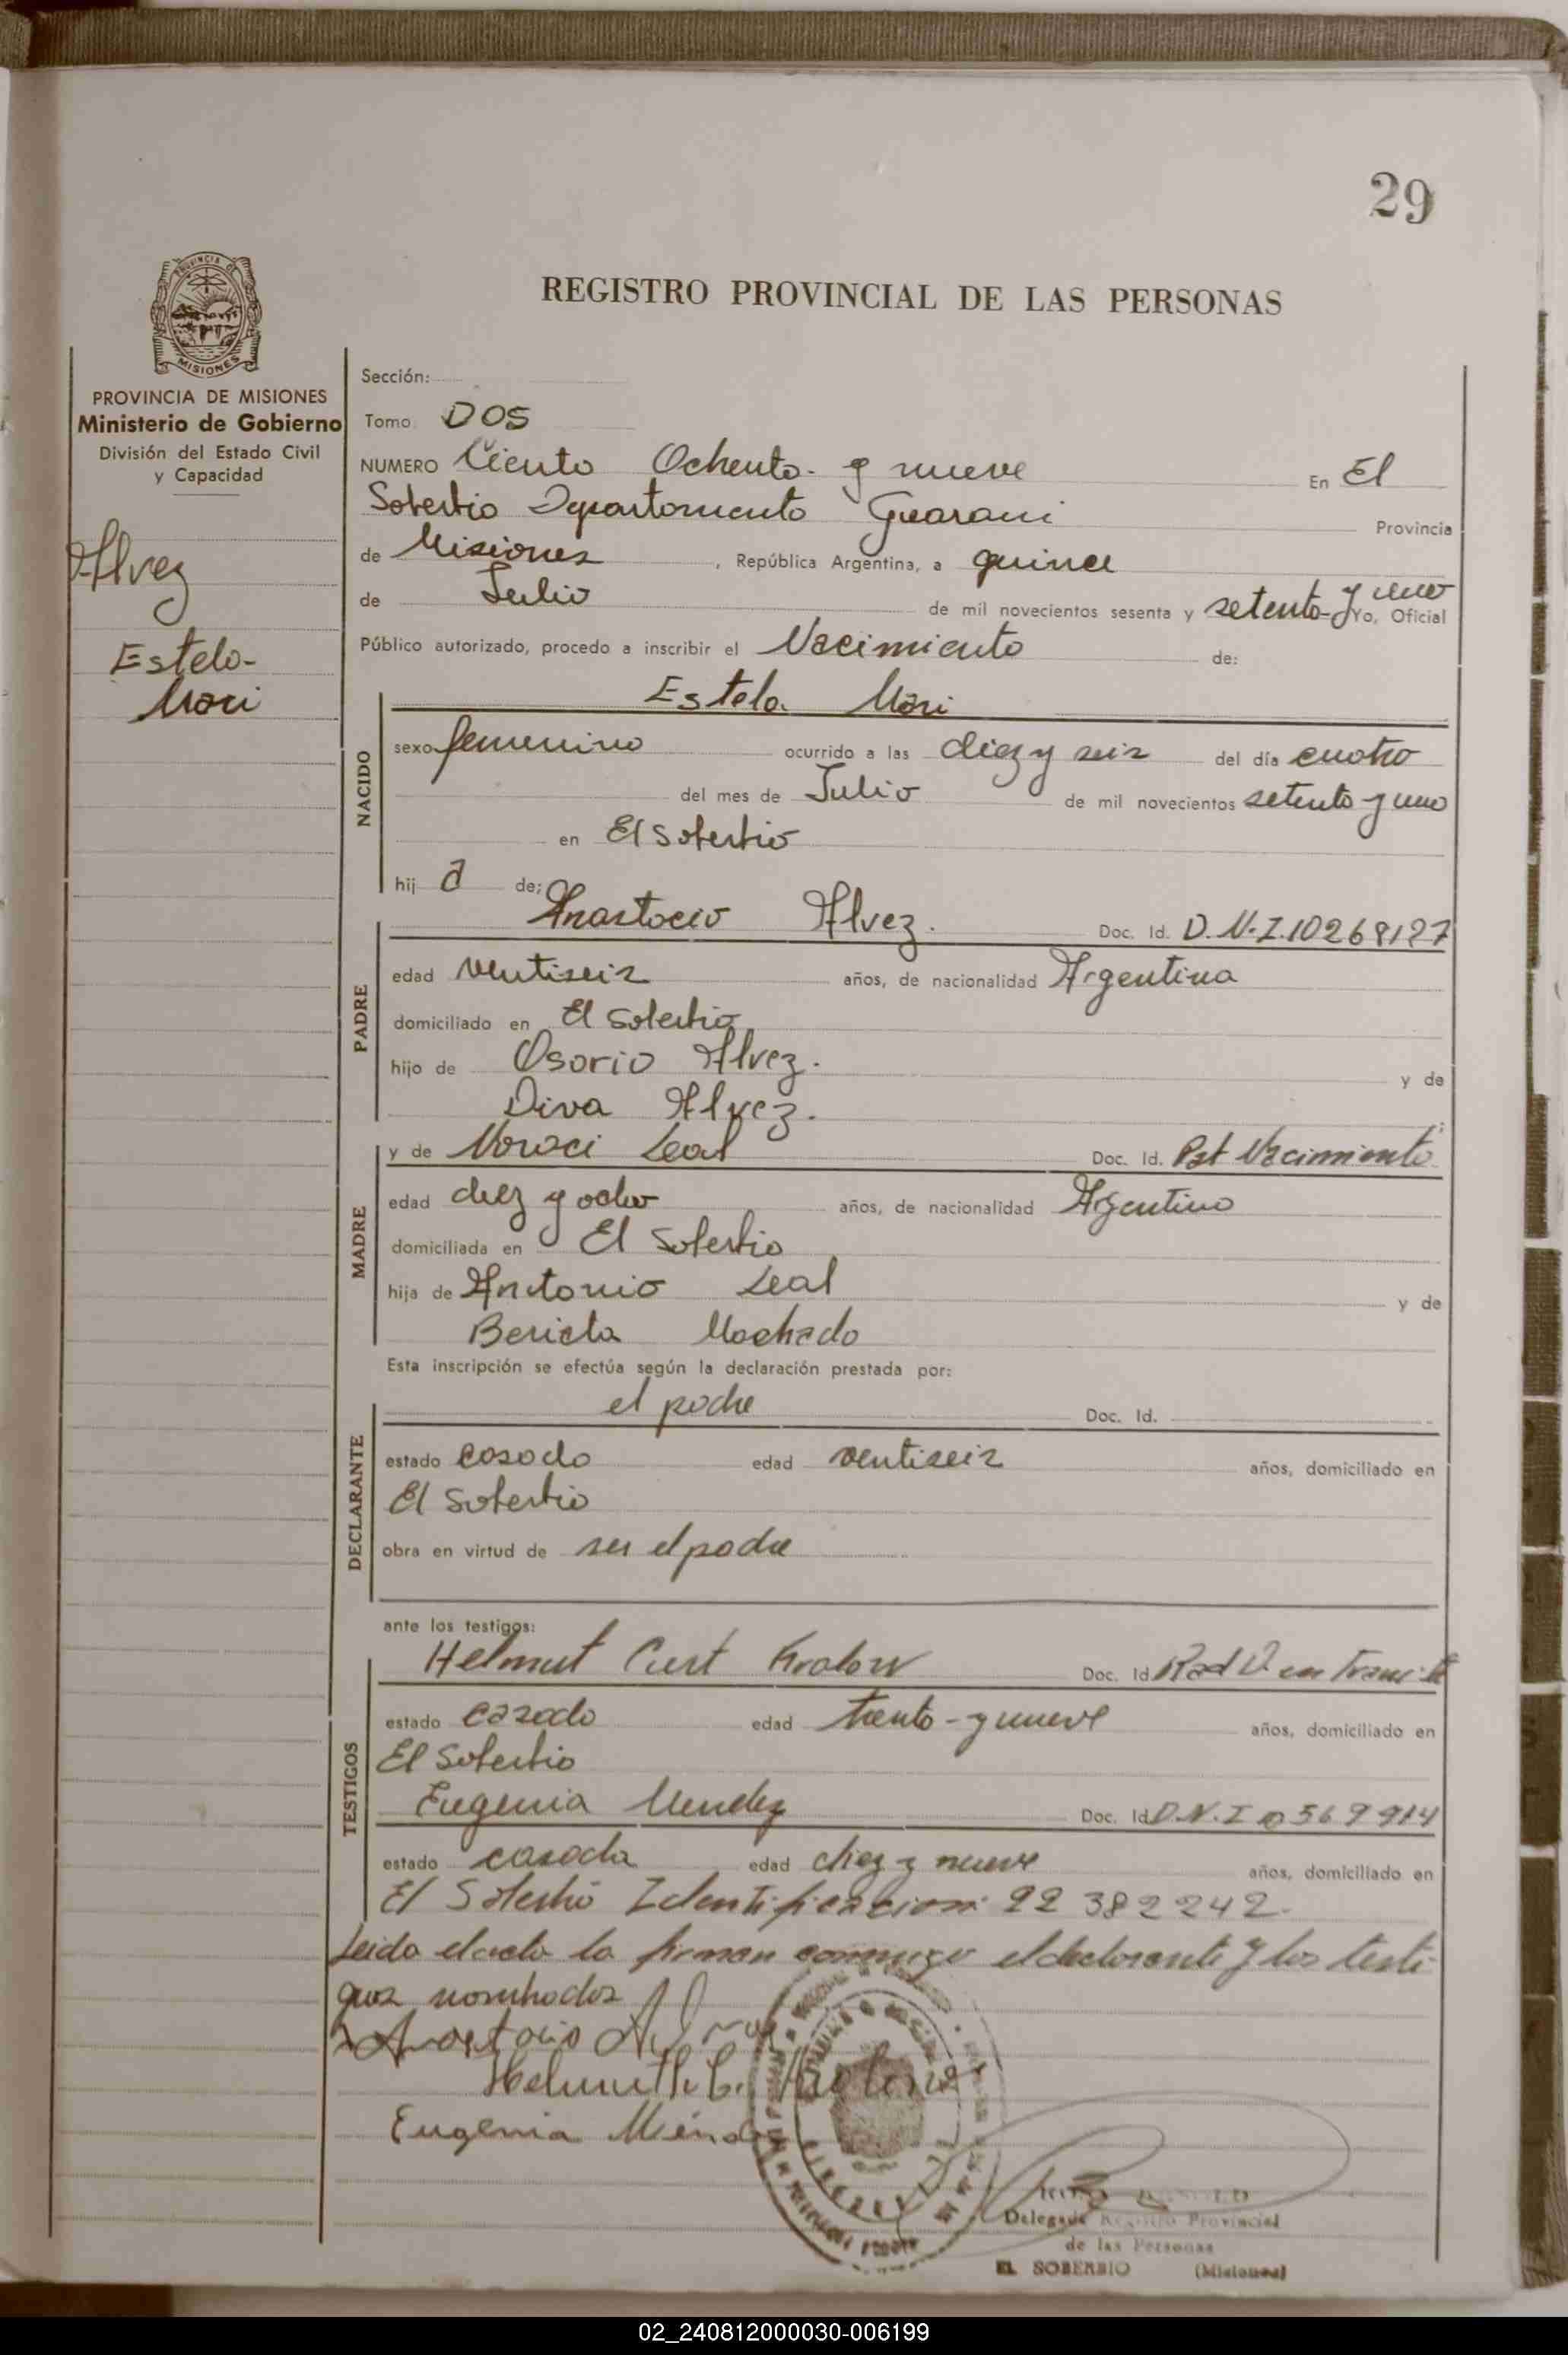 29
PROVINCIA DE
MISIONES
REGISTRO PROVINCIAL DE LAS PERSONAS
PROVINCIA DE MISIONES
Ministerio de Gobierno
División del Estado Civil
y Capacidad
Alvez
Estela
Mari
Sección:
Tomo DOS
NUMERO Ciento Ochenta y nueve En El
Soberbio Departamento Guarani Provincia
de Misiones, República Argentina, a quince
de Julio de mil novecientos sesenta y setenta y uno Yo, Oficial
Público autorizado, procedo a inscribir el Nacimiento de:
Estela Mari
NACIDO
sexo femenino ocurrido a las diez y seis del día cuatro
del mes de Julio de mil novecientos setenta y uno
en El Soberbio
hij a de:
Anastacio Alvez. Doc. Id. D.N.I. 10268127
PADRE
edad ventiseis años, de nacionalidad Argentina
domiciliado en El Soberbio
hijo de Osorio Alvez. y de
Diva Alvez.
MADRE
y de Leal Doc. Id. Nacimiento
edad diez y ocho años, de nacionalidad Argentina
domiciliada en El Soberbio
hija de Antonio Leal y de
Machado
Esta inscripción se efectúa según la declaración prestada por:
DECLARANTE
el padre Doc. Id.
estado casado edad ventiseis años, domiciliado en
El Soberbio
obra en virtud de ser el padre
ante los testigos:
TESTIGOS
Helmut Curt Doc. Id. en
estado casado edad trenta y nueve años, domiciliado en
El Soberbio
Eugenia Mendez Doc. Id. D.N.I
estado casada edad diez y nueve años, domiciliado en
El Soberbio Identificacion 22 382242.
Leida el acta la firman conmigo el declarante y los testi
gos nombrados
Anastacio
Eugenia
Delegado Registro Provincial
de las Personas
EL SOBERBIO (Misiones)
02_240812000030-006199